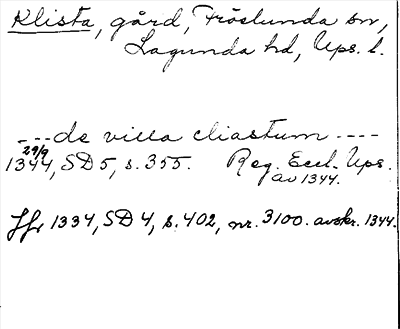 Klista, gård, Fröslunda sn,
Lagunda hd, Ups. l.
---de villa cliastum----
29/9
1344, SD 5, s. 355. Reg. Eccl. Ups.
av 1344.
Jfr 1334, SD 4, s. 402, nr. 3100. avskr. 1344.